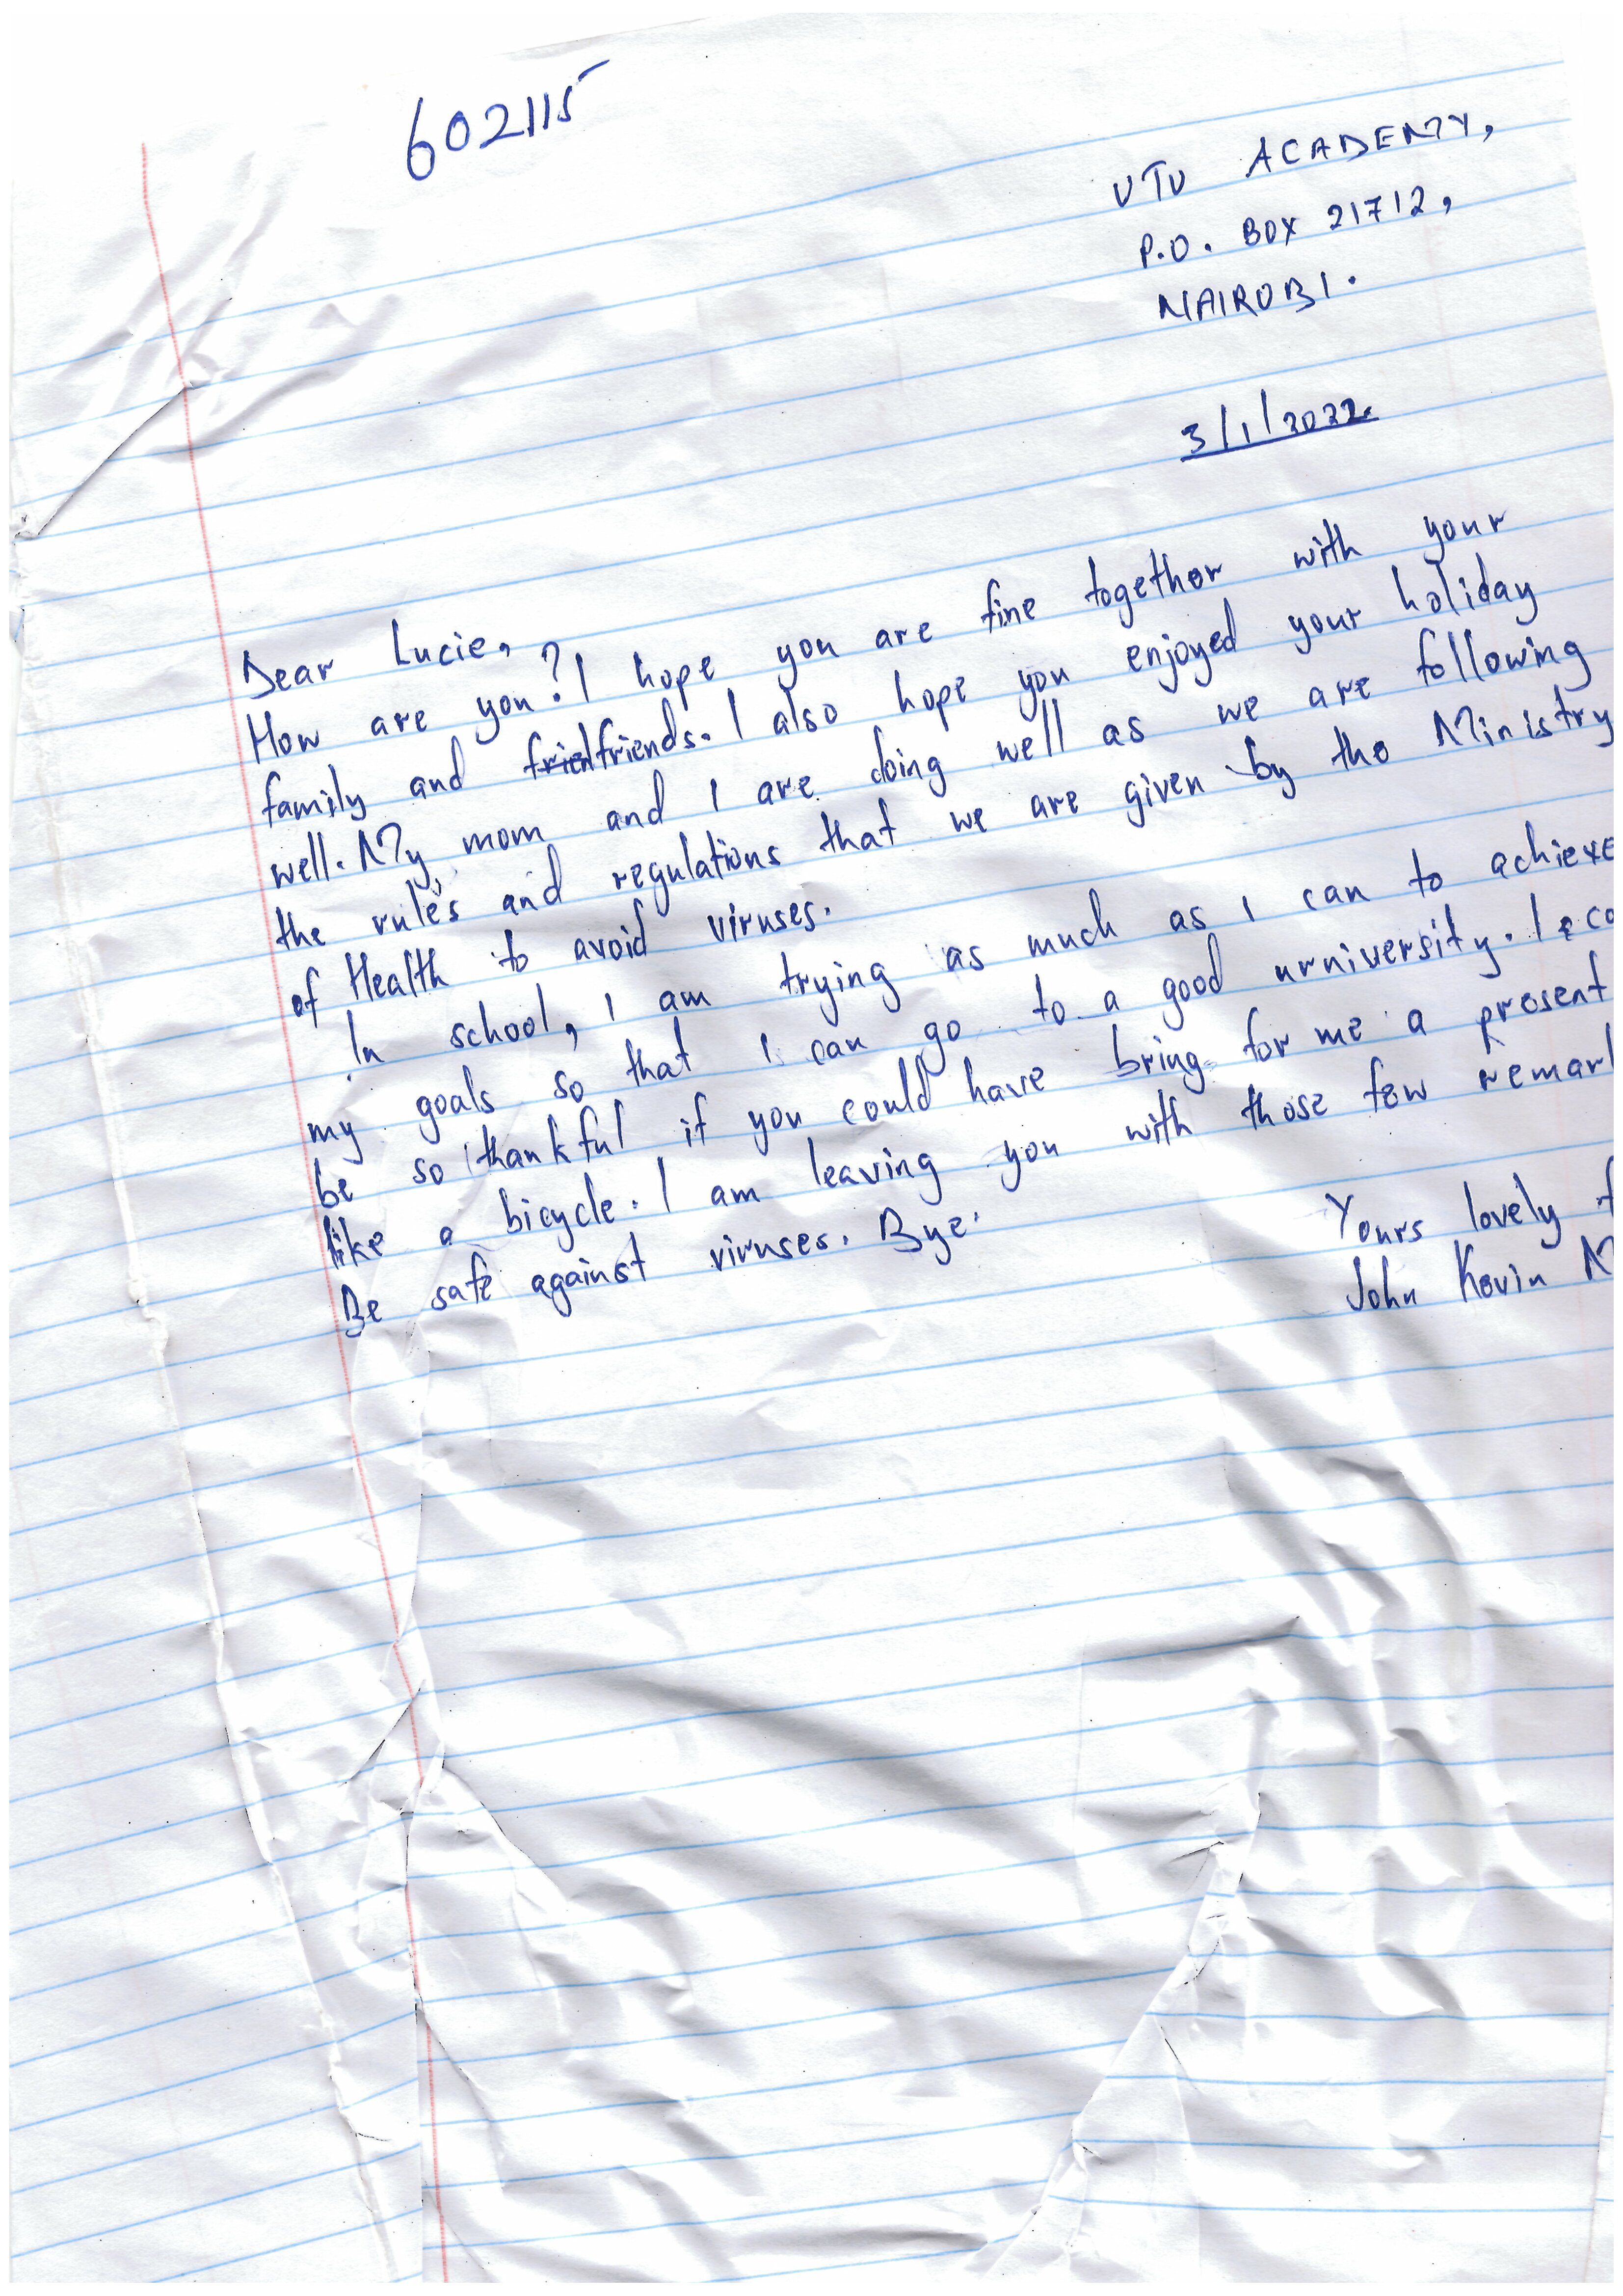 602115
UTU ACADEMY,
P.O. BOX 21712,
NAIROBI.
3/1/2022.
Dear Lucie,
How are you? I hope you are fine together with your
family and friends. I also hope you enjoyed your holiday
well. My mom and I are doing well as we are following
the rules and regulations that we are given by the Ministry
of Health to avoid viruses.
In school, I am trying as much as I can to achieve
my goals so that I can go to a good urniversity. I
be so thankful if you could have bring for me a present
like a bicycle. I am leaving you with those few
Be safe against viruses. Bye.
Yours lovely
John Kevin